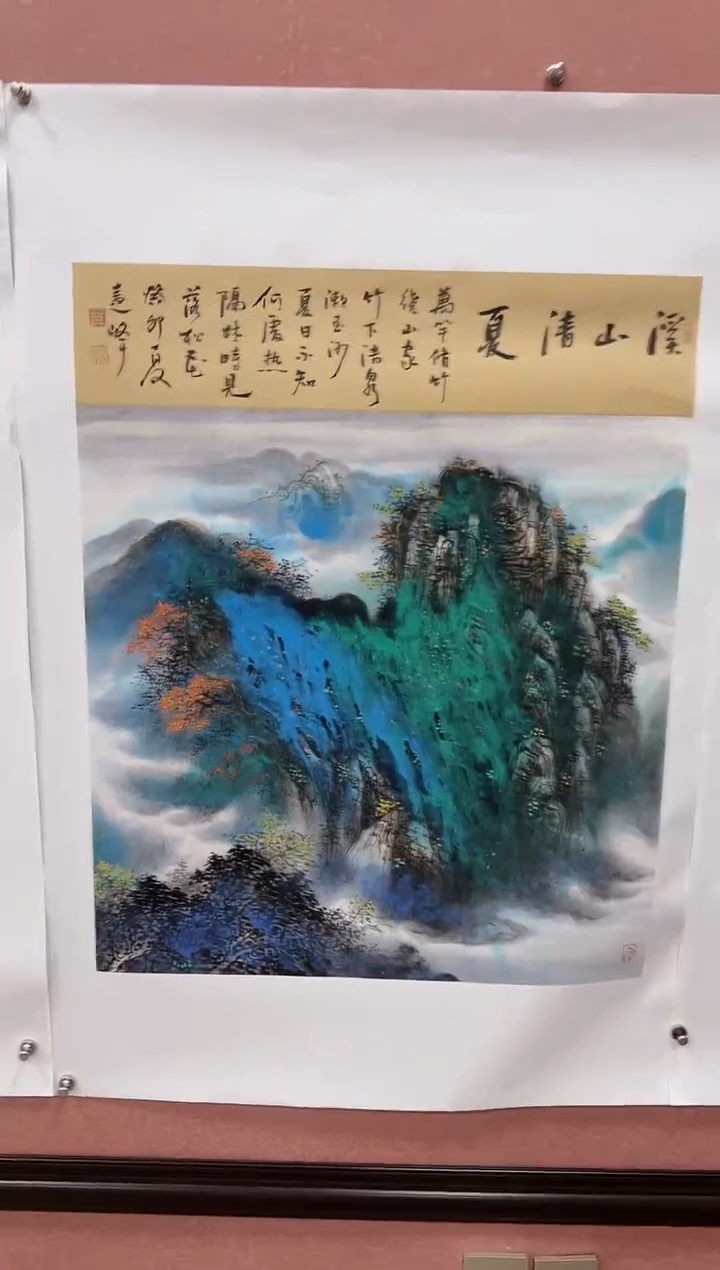 溪山清夏
萬竿脩竹
繞山家
竹下清泉
漱玉沙
夏日不知
何處熱
隔林時見
落松花
癸卯夏